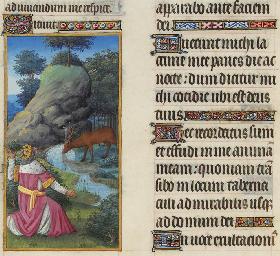 ad iuuandum me respice.
Sitiuit
apparabo ante faciem
dei
Fuerunt michi la
crime mee panes die ac
nocte: dum dicitur mi
chi cotidie ubi est deus
tuus
Hec recordatus sum
et effudi in me animam
meam: quoniam tran
sibo in locum taberna
culi admirabilis usque
ad domum dei
In uoce exultationis